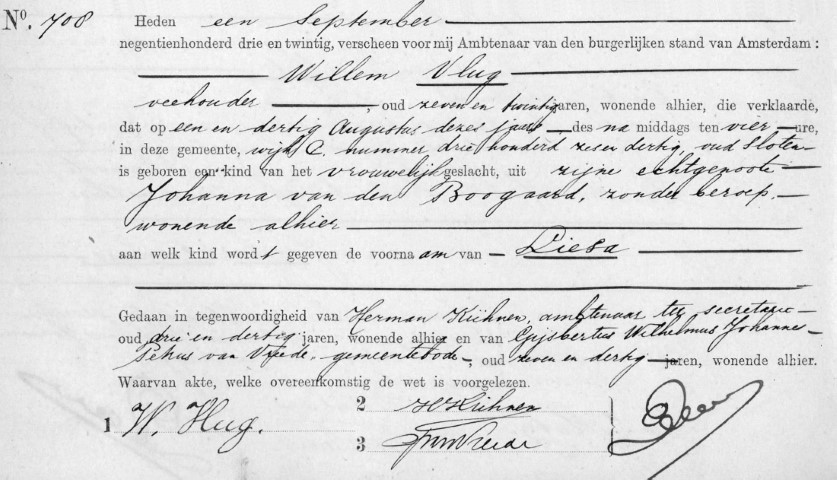 Nº. 708 Heden een September
negentienhonderd drie en twintig, verscheen voor mij Ambtenaar van den burgerlijken stand van Amsterdam:
Willem Vlug
veehouder, oud zeven en twintig jaren, wonende alhier, die verklaarde,
dat op een en dertig Augustus dezes jaars des na middags ten vier ure,
in deze gemeente, wijk C. nummer drie honderd zes en dertig, oud Sloten
is geboren een kind van het vrouwelijk geslacht, uit zijne echtgenoote
Johanna van den Boogaard, zonder beroep,
wonende alhier
aan welk kind wordt gegeven de voornaam van Diesa
Gedaan in tegenwoordigheid van Herman Kühnen, ambtenaar ter secretarie
oud drie en dertig jaren, wonende alhier en van Gijsbertus Wilhelmus Johannes
Petrus van Vreede, gemeentebode, oud zeven en dertig jaren, wonende alhier.
Waarvan akte, welke overeenkomstig de wet is voorgelezen.
1 W. Vlug.
2 H Kühnen
3